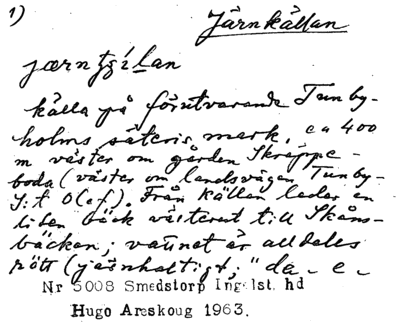 1) Järnkällan
jærntzílan
källa på förutvarande Tunby-
holms säteris mark, ca 400
m väster om gården Skräppe-
boda (väster om landsvägen Tunby-
S:t O(ef). Från källan leder en
liten bäck västerut till Skåns-
bäcken; vattnet är alldeles
rött (järnhaltigt; "da_ e_
Nr 5008 Smedstorp Ingelst. hd
Hugo Areskoug 1963.